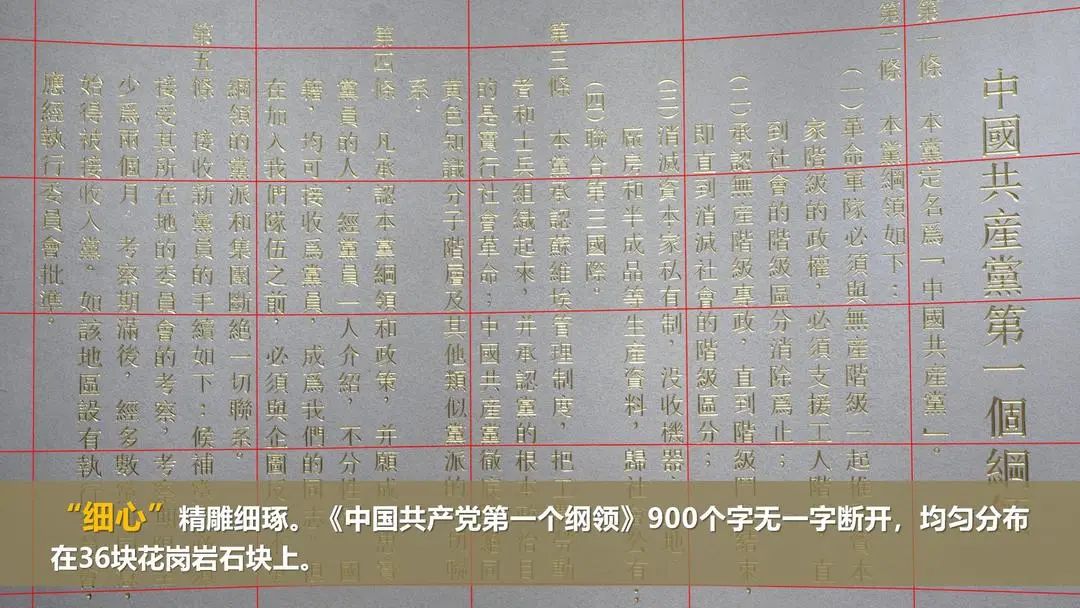 中國共産黨第一個綱領
第一條 本黨定名爲「中國共産黨」。
第二條 本黨綱領如下：
（一）革命軍隊必須與無産階級一起推翻資本
家階級的政權，必須支援工人階級，直
到社會的階級區分消除爲止；
（二）承認無産階級專政，直到階級鬥爭結束，
即直到消滅社會的階級區分；
（三）消滅資本家私有制，没收機器、土地、
廠房和半成品等生産資料，歸社會公有；
（四）聯合第三國際。
第三條 本黨承認蘇維埃管理制度，把工農勞動
者和士兵組織起來，并承認黨的根本政治目
的是實行社會革命；中國共産黨徹底斷絕同
黄色知識分子階層及其他類似黨派的一切聯
系。
第四條 凡承認本黨綱領和政策，并願成爲忠實
黨員的人，經黨員一人介紹，不分性别、國
籍，均可接收爲黨員，成爲我們的同志。但
在加入我們隊伍之前，必須與企圖反
綱領的黨派和集團斷絕一切聯系。
第五條 接收新黨員的手續如下：候補
接受其所在地的委員會的考察，考察期限至
少爲兩個月。考察期滿後，經多數黨員
始得被接收入黨。如該地區設有執行
應經執行委員會批準。
“细心”精雕细琢。《中国共产党第一个纲领》900个字无一字断开，均匀分布
在36块花岗岩石块上。